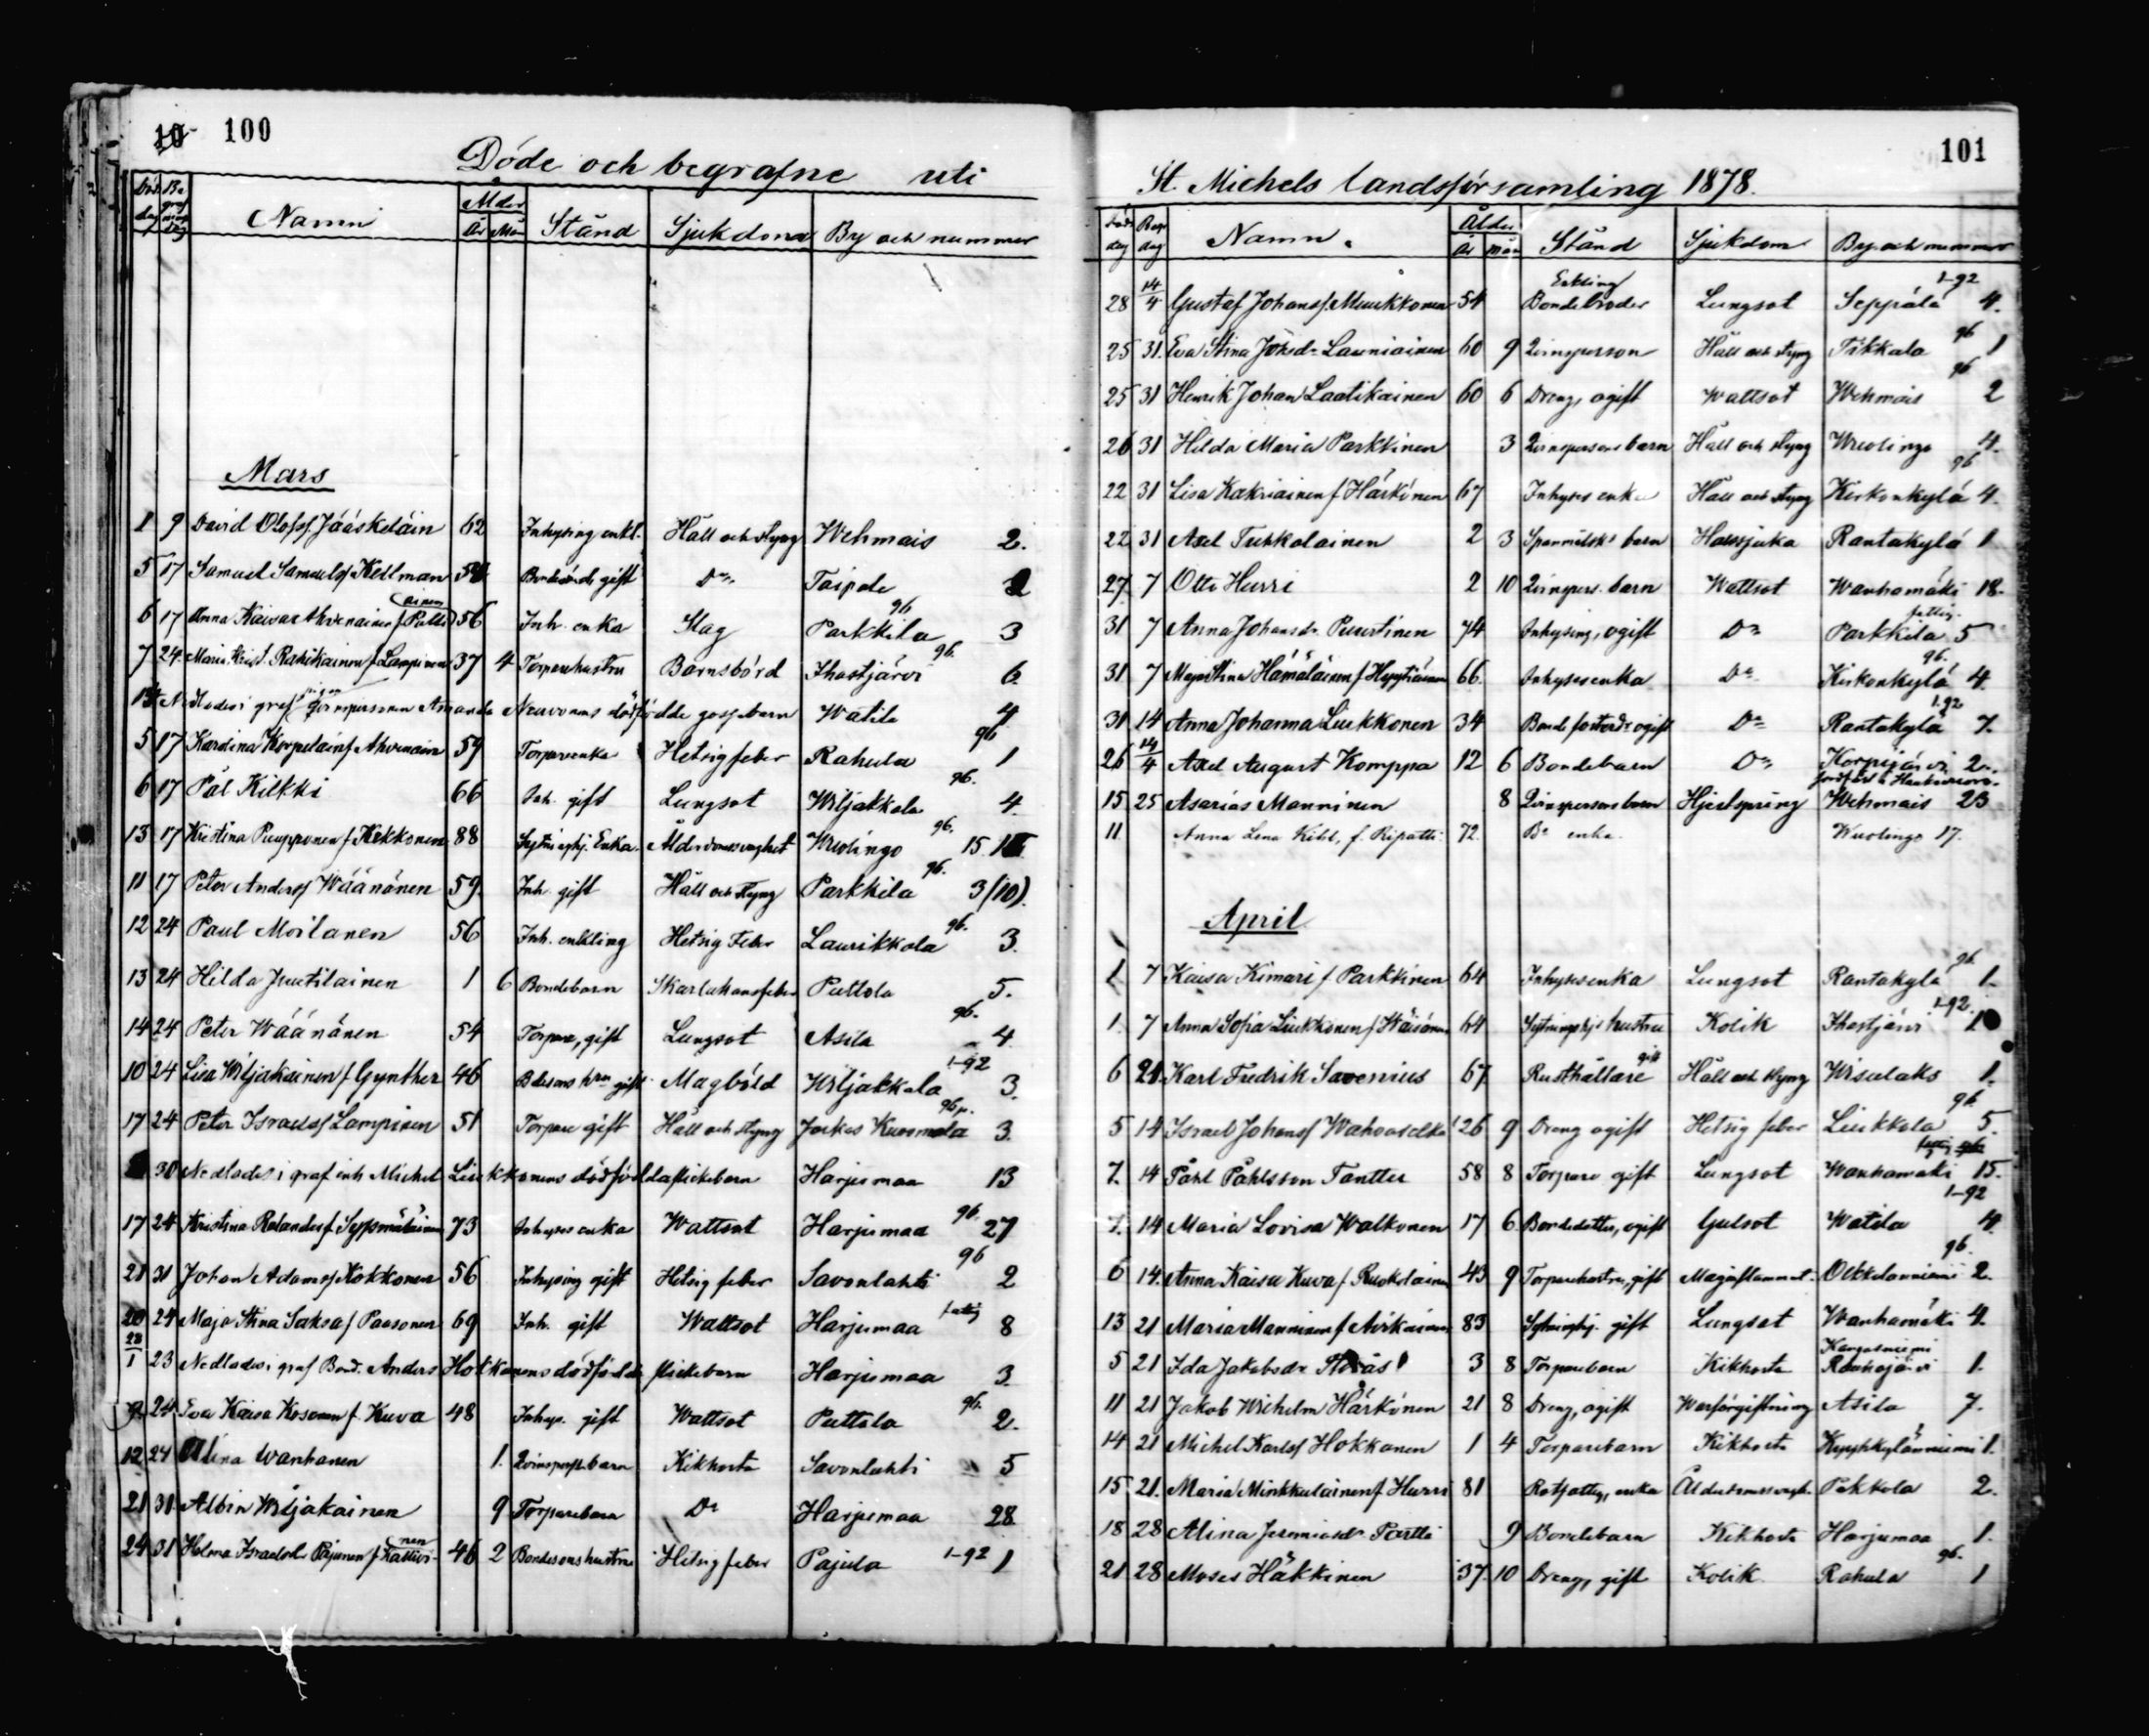 10 100
Döde och begrafne uti
Död dag Begrafnings dag Namn Ålder År Mån Stånd Sjukdom By och nummer
Mars
1 9 David Olofss. Jääskeläin 62 Inhysing enkl. Håll och styng Wehmais 2.
5 17 Samuel Samuelss Kellman gift Do Taipale 2
6 17 Anna Kaisa Ahvenainen f. 56 Inh. enka Slag Parkkila 96 3
7 24 Maria Krist. Rahikainen f. Lampinen 37 4 Torparehustru Barnsbörd Ihastjärvi 96. 6.
Nedlades i graf qvinspersonen Amanda Neuvonens dödfödde gossebarn Watila 4
5 17 Karolina Korpelain f. Ahvenain 59 Torpareenka Hetsig feber Rahula 96 1
6 17 Pål Kilkki 66 Inh. gift Lungsot Wiljakkala 96. 4.
13 17 Kristina Pumpponen f. Kekkonen 88 Enka. Ålderdomssvaghet Wuolingo 96. 15.
11 17 Peter Anderss Wäänänen 59. Inh. gift Håll och styng Parkkila 96. 3 (10).
12 24 Paul Moilanen 56 Inh. enkling Hetsig Feber Laurikkala 96. 3.
13 24 Hilda Juutilainen 1 6 Bondebarn Skarlakansfeber Puttola 5.
14 24 Peter Wäänänen 54 Torpare, gift Lungsot Asila 96. 4
10 24 Lisa Wiljakainen f. Gynther 46 gift Magböld Wiljakkala 1-92 3.
17 24 Peter Israelss Lampinen 51 Torpare gift Håll och styng Kuosmala 3.
30 Nedlades i graf inh Michel Liukkonens dödfödda flickebarn Harjumaa 13
17 24 Kristina Rolandss f. 73 Inhyses enka Wattsot Harjumaa 96. 27
21 31 Johan Adamss Kokkonen 56 Inhysing gift Hetsig feber Savonlahti 96 2
20 24 Maja Stina Saksa f. Paasonen 69 Inh. gift Wattsot Harjumaa fattig 8
23/1 23 Nedlades i graf Bond. Anders Hokkanens dödfödda flickebarn Harjumaa 3.
24 Eva Kaisa Kosonen f. Kuva 48 Inhys. gift Wattsot Puttola 96. 2.
12 24 Alina Wanhanen 1. Qvinspers. barn Kikhosta Savonlahti 5
21 31 Albin Wiljakainen 9 Torparebarn Do Harjumaa 28
24 31 Helena Israelsdr Pajunen f. 46 2 Bondesonshustru Hetsig feber Pajula 1-92 1
101
St. Michels landsförsamling 1878.
Död dag Begr dag Namn. Ålder År mån Stånd Sjukdom By och nummer
28 14/4 Gustaf Johanss. Muukkonen 54 Enkling Bondebroder Lungsot Seppälä 1-92 4.
25 31. Eva Stina Johsdr Launiainen 60 9 Qvinsperson Håll och styng Tikkala 96 1
25 31 Henrik Johan Laatikainen 60 6 Dreng, ogift Wattsot Wehmais 96 2
26 31 Hilda Maria Parkkinen 3 Qvinspersons barn Håll och styng Wuolingo 4.
22 31 Lisa Kakriainen f. Härkönen 67 Inhyses enka Håll och styng Kirkonkylä 96 4.
22 31 Axel Tukkalainen 2 3 barn Halssjuka Rantakylä 1
27 7 Otto Hurri 2 10 Qvinspers. barn Wattsot Wanhamäki 18.
31 7 Anna Johansdr. Puustinen 74 Inhysing, ogift Do Parkkila fattig 5
31 7 Maja Stina Hämäläinen f. 66. Inhysesenka Do Kirkonkylä 96. 4.
31 14 Anna Johanna Liukkonen 34 ogift Do Rantakylä 1-92 7.
26 14/4 Axel August Komppa 12 6 Bondebarn Do Korpijärvi 2.
15 25 Asarias Manninen 8 Qvinspersons barn Hjertspring Wehmais 23
11 Anna Lena Kihl, f. Ripatti 72. enka. Wuolingo 17.
April
1 7 Kaisa Kimari f. Parkkinen 64 Inhysesenka Lungsot Rantakylä 96 1.
1. 7 Anna Sofia Liukkonen f. Wäisänen 64 hustru Kolik Ihastjärvi 1-92. 1
6 21. Karl Fredrik Savenius 67 Rusthållare gift Håll och styng Wisulaks 1.
5 14 Israel Johanss 26 9 Dreng ogift Hetsig feber Liukkola 96. 5.
7. 14 Påhl Påhlsson Tantteu 58 8 Torpare gift Lungsot Wanhamäki fattig 15.
7. 14 Maria Lovisa Walkonen 17 6 Bondedotter, ogift Gulsot Watila 1-92 4.
6 14. Anna Kaisa Kuva f. Ruokolainen 43 9 Torparehustru, gift Olkkolanniemi 96. 2.
13 21 Maria Manninen f. 83 gift Lungsot Wanhamäki 4.
5 21 Ida Jakobsdr 3 8 Torparebarn Kikhosta Kangasniemi 1.
11 21 Jakob Wilhelm Härkönen 21 8 Dreng, ogift Warförgiftning Asila 7.
14 21 Michel Karlss Hokkanen 1 4 Torparebarn Kikhosta 1.
15 21. Maria Minkkulainen f. Hurri 81 Rotfattig, enka Ålderdomssvagh. Pekkola 2.
18 28 Alina Jeremiasdr Partti 9 Bondebarn Kikhosta Harjumaa 1.
21 28 Moses Häkkinen 37 10 Dreng, gift Kolik Rahula 96. 1